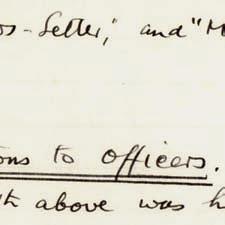 os-Letter", and "M
ons to officers.
th above was h